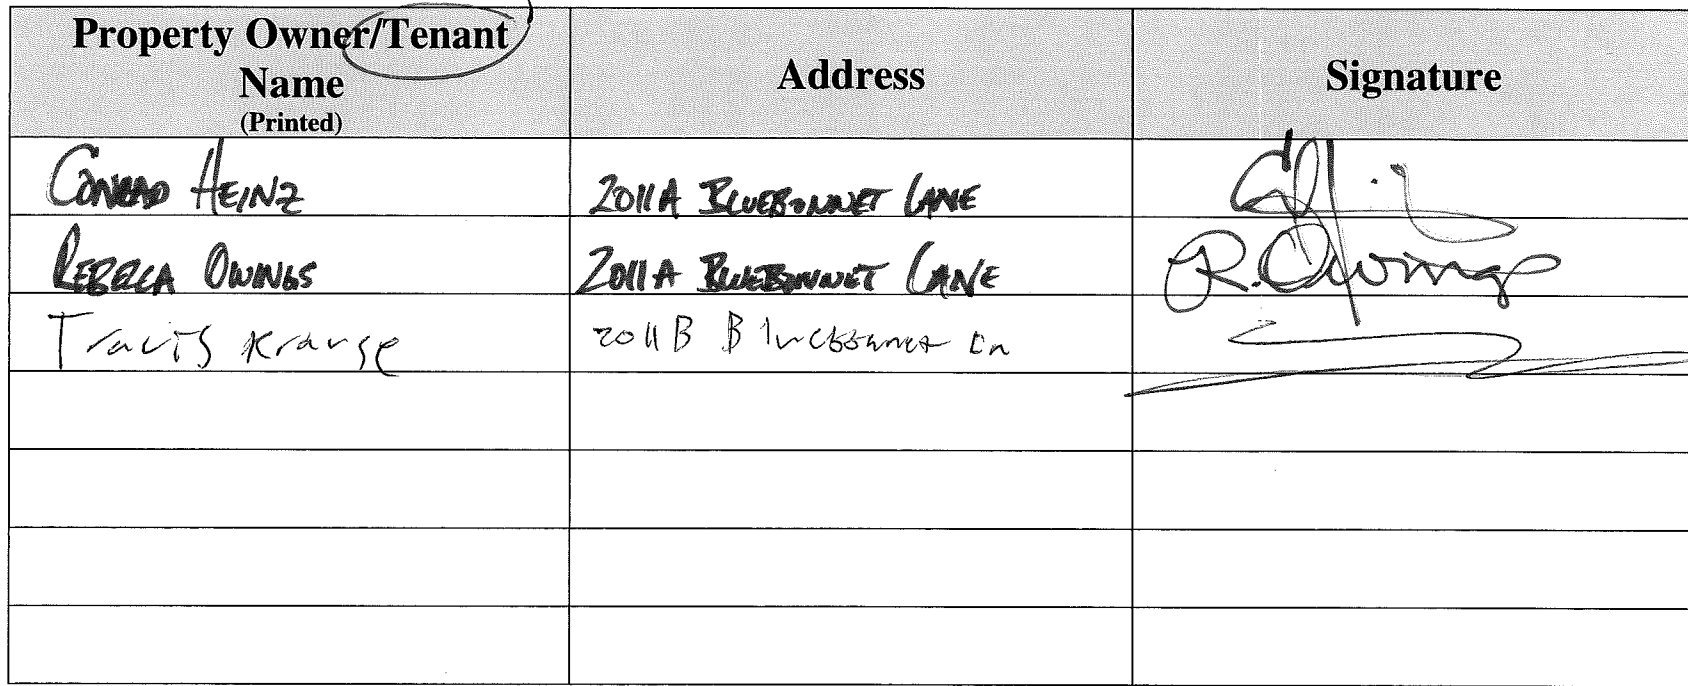 Property Owner/Tenant
Name
(Printed)
Address
Signature
CONRAD HEINZ
2011A BLUEBONNET LANE
REBECA OWINGS
2011A BLUEBONNET LANE
R. Owings
Travis Krause
2011 B Bluebonnet Ln